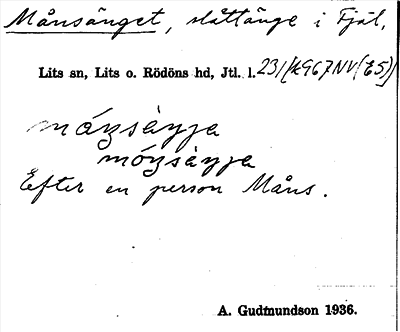 Månsänget, slåttänge i Fjäl,
Lits sn, Lits o. Rödöns hd, Jtl. l.
månsàŋŋa
mónsàŋŋa
Efter en person Måns.
A. Gudmundson 1936.